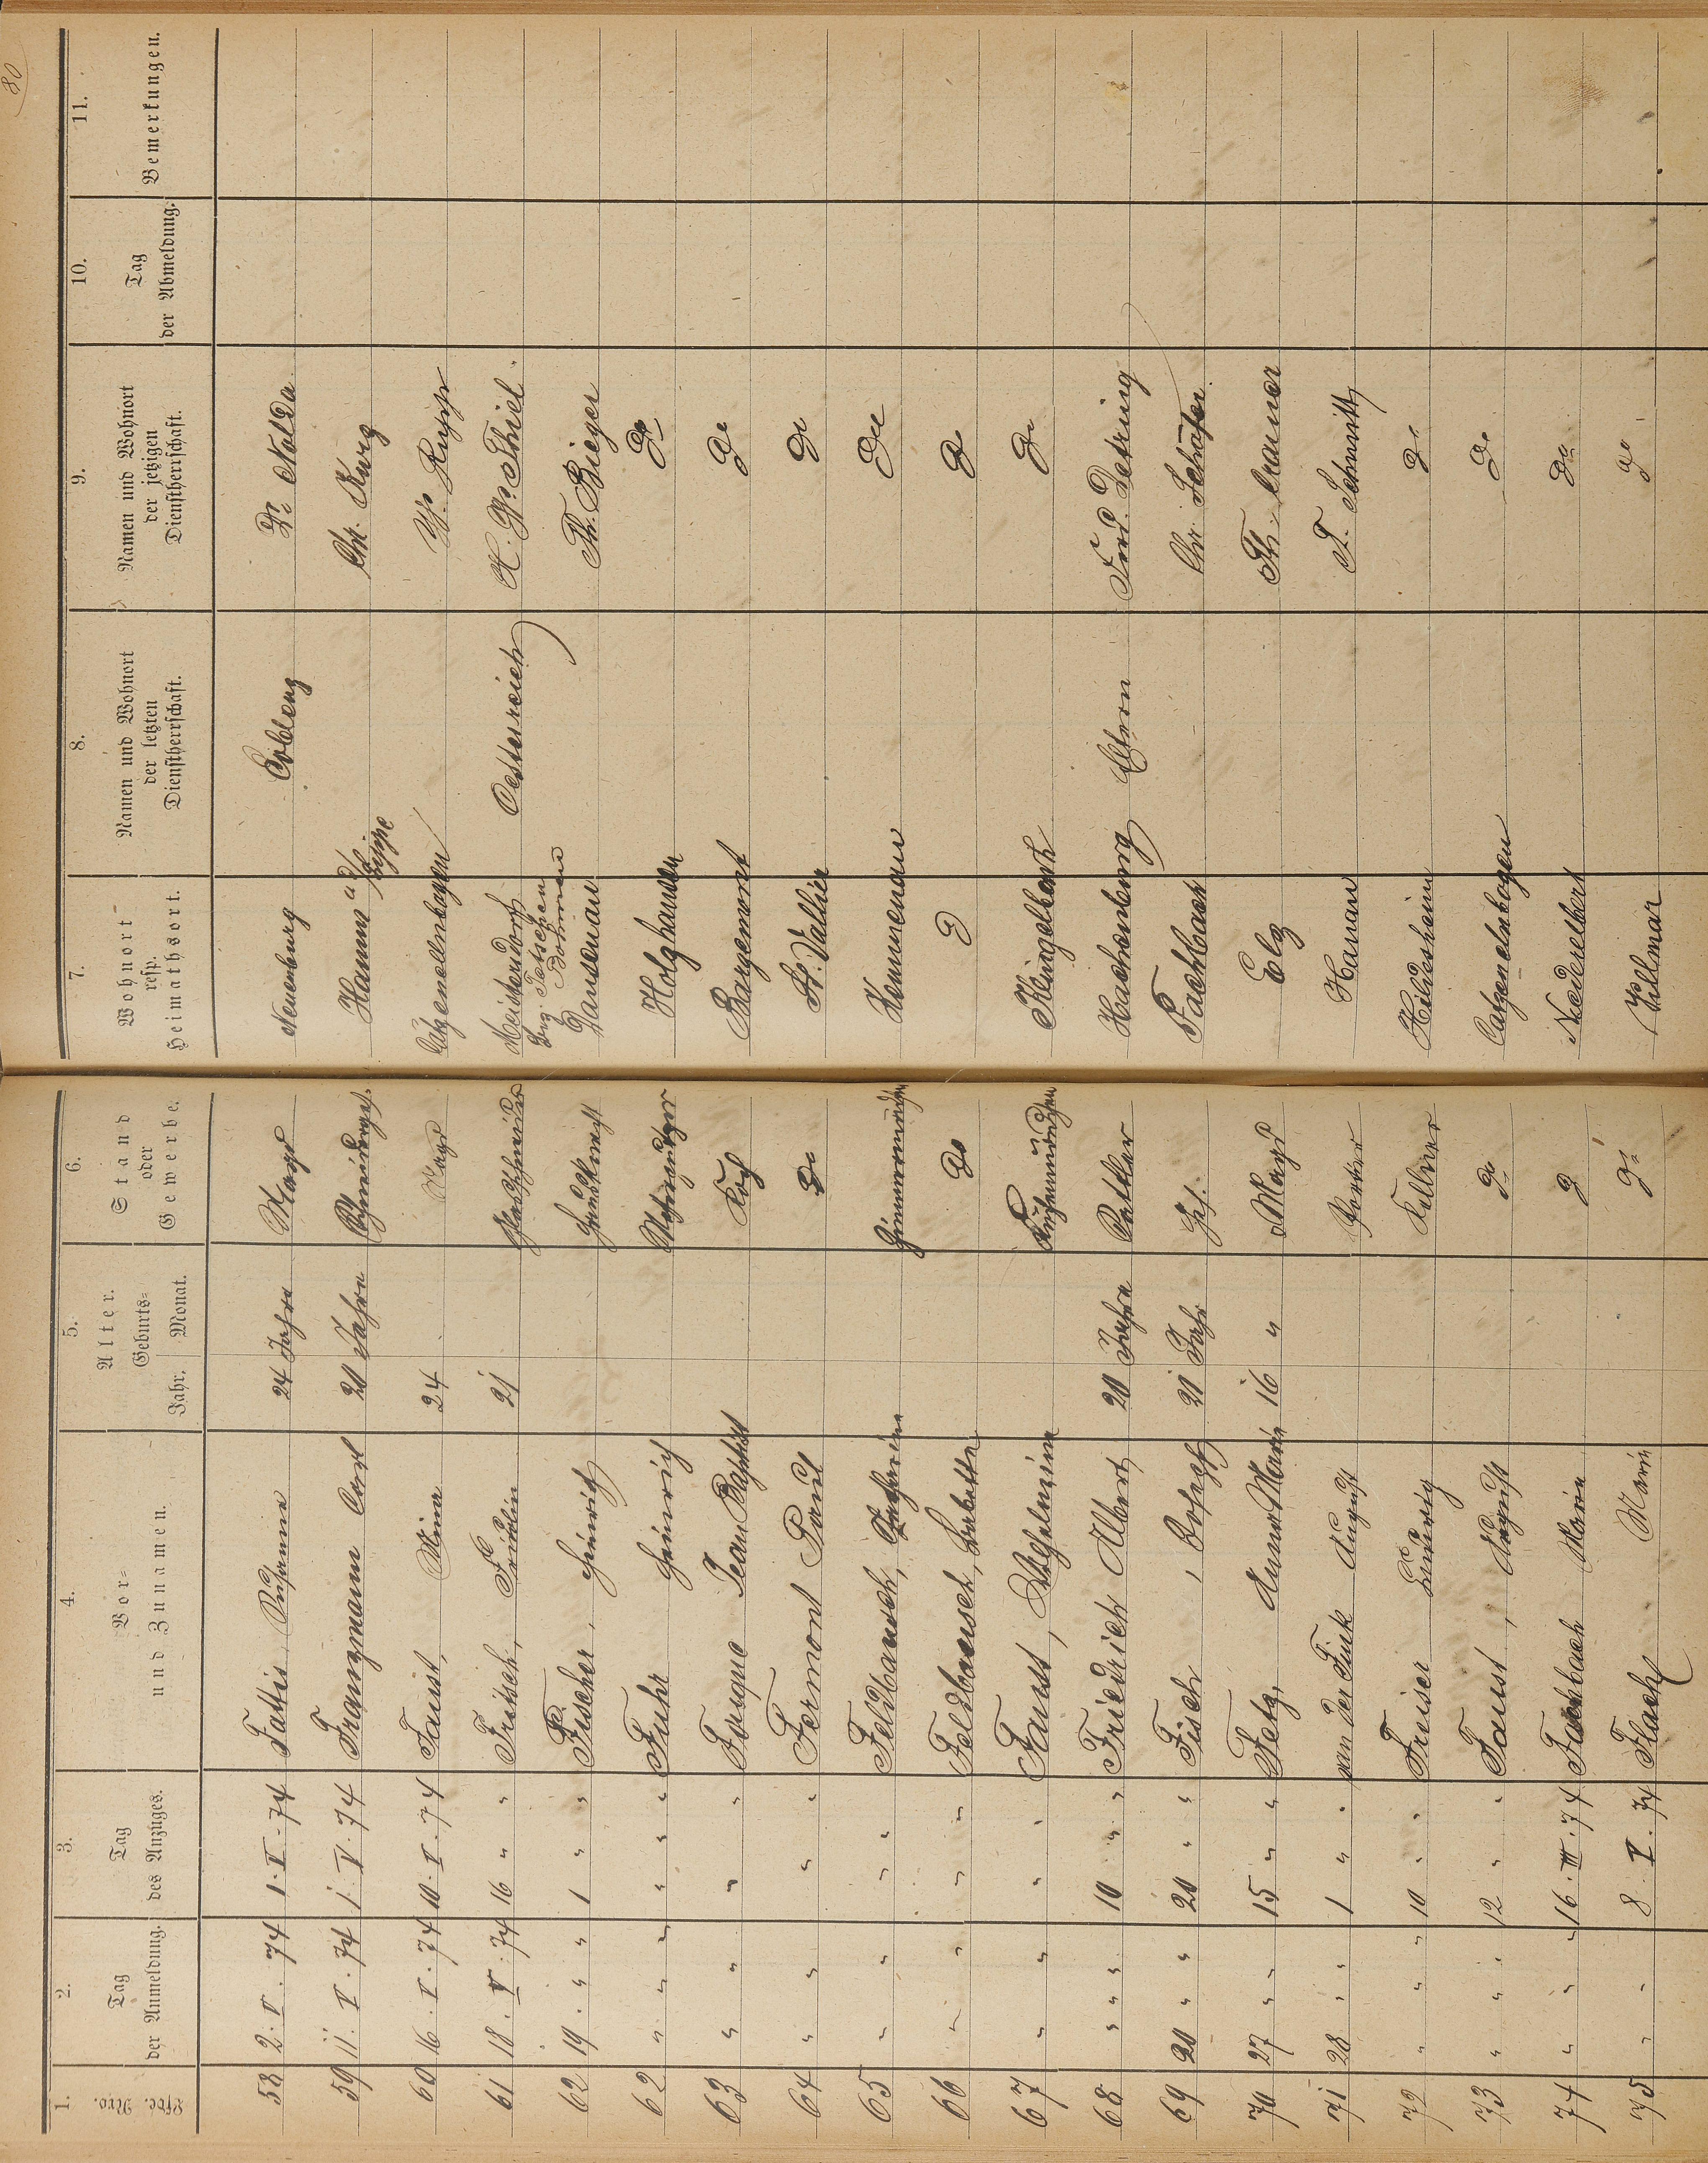 80
1. 2. 3. 4. 5. 6. 7. 8. 9. 10. 11.
Lfde. Nro. Tag der Anmeldung. Tag des Anzuges. Vor- und Zunamen. Alter. Geburts- Jahr. Monat. Stand oder Gewerbe. Wohnort resp. Heimathsort. Namen und Wohnort der letzten Dienstherrschaft. Namen und Wohnort der jetzigen Dienstherrschaft. Tag der Abmeldung. Bemerkungen.
58 2. V. 74 1. V. 74 Susanne 24 Jahre Magd Neuenburg Coblenz
59 11. V. 74 1. V. 74 Franzmann Carl 20 Jahre Hamm Chr. Kurz
60 16. V. 74 10. V. 74 Faust, Mina 24 Magd Catzenellnbogen Rupp
61 18. V. 74 16 " " Fritsch, Fridolin 21 Meistersdorf Bez. Tetschen Böhmen Oesterreich Thiel.
62 19. " " 1 " " Fischer, Heinrich Hausknecht Dausenau Th. Bieger
62 " " " " " " Fuhr Heinrich Holzhausen do
63 " " " " Fouque Jean Baptist Koch Bargemont do
64 " " " " Fermont Paul do St. Vallier do
65 " " " " Feldbausch, Zimmermädchen Kemmenau do
66 " " " " Feldbausch, Babette do do do
67 " " " " Faust, Wilhelmine Küchenmädchen Klingelbach do
68 " " " 10 " " Friedrich Albert 20 Jahre Hachenburg Eltern Ferd. Detring
69 20 " " 20 " " Fisch, Joseph 21 Jahr Fachbach Chr. Schäfer.
70 27 " " 15 " " Fetz, Anna Maria 16 " Magd Elz Th. Cramer
71 28 " " 1 " " van der Fink August Hanau F. Schmitt
72 " " " 10 " " Freiser Ludwig Kellner Hildesheim do
73 " " " 12 " " Faust, August do Catzenelnbogen do
74 " " " 16. III. 74 Fachbach Marie do Niederelbert do
75 " " 8 V. 74 Flach Marie do Villmar do